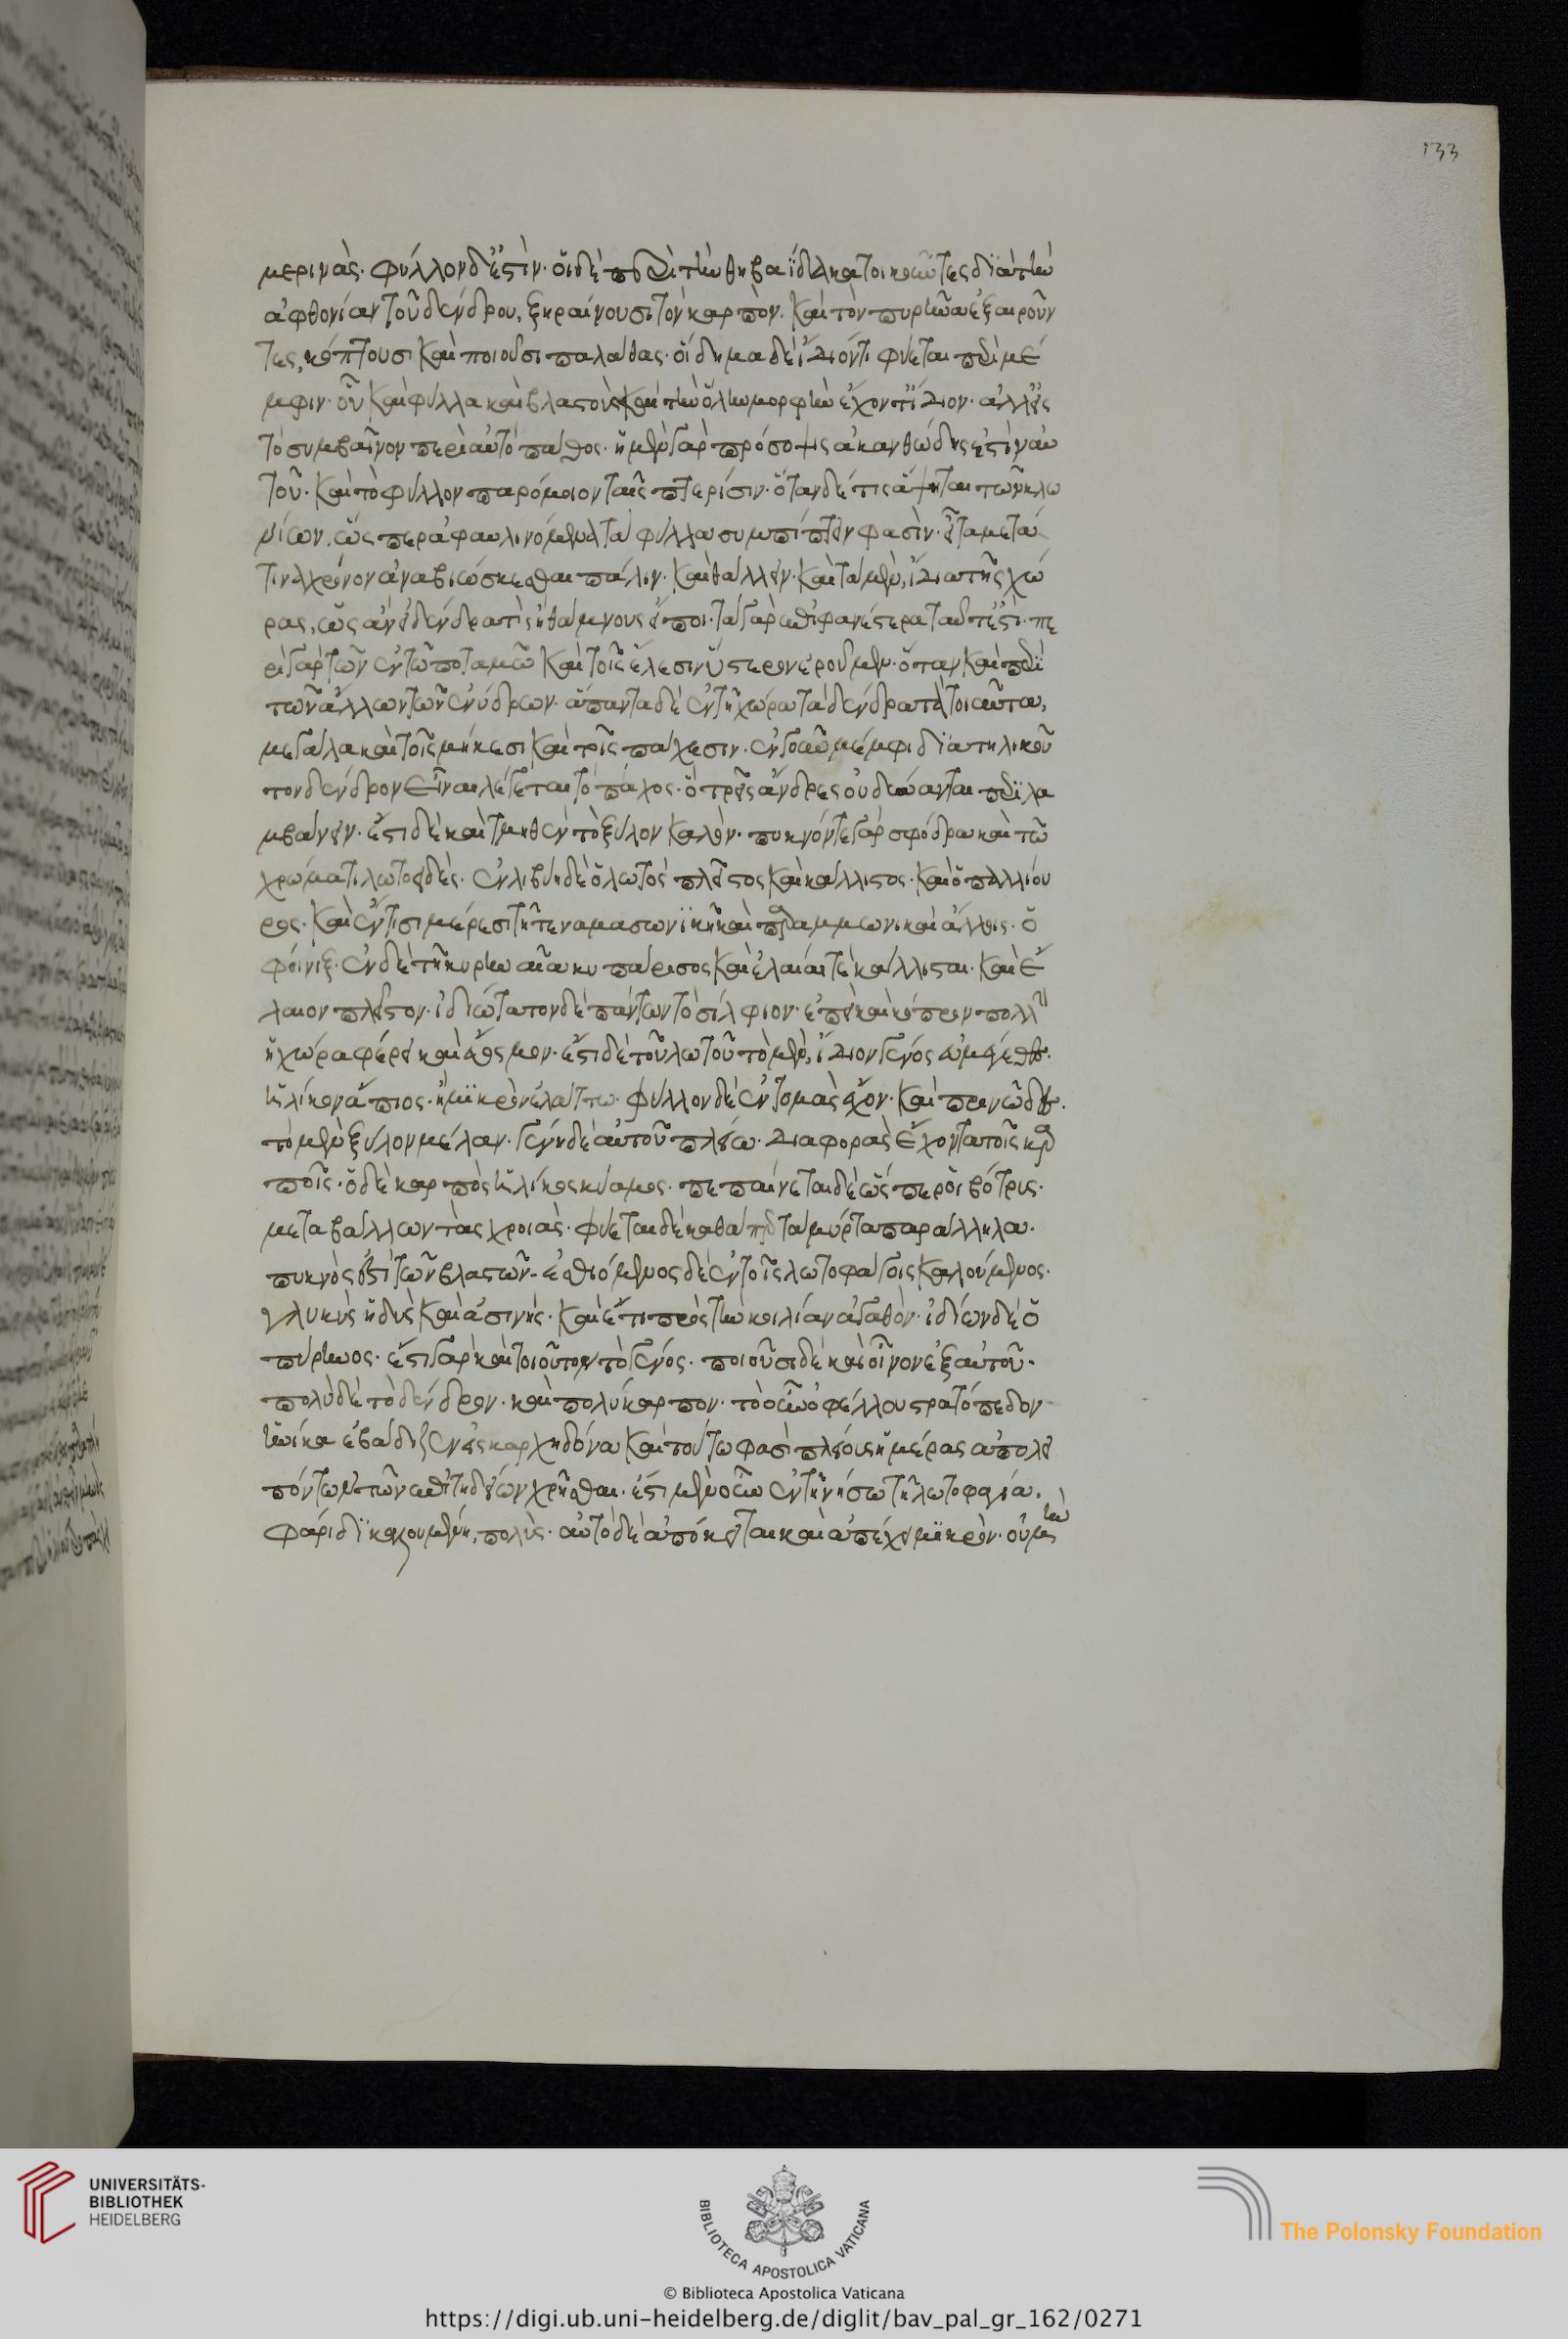 133
μερινὰς· φύλλον δ' ἐστὶν· οἱ δὲ περὶ τὴν θηβαΐδα κατοικοῦντες διὰ τὴν
ἀφθονίαν τοῦ δένδρου, ξηραίνουσι τὸν καρπὸν· καὶ τὸν πυρῆνα ἐξαιροῦν
τες, κόπτουσι καὶ ποιοῦσι παλάθας· οἴδημα δὲ ἴδιόν τι φύεται περὶ μέ
μφιν· οὐ καὶ φύλλα καὶ βλαστοὺς καὶ τὴν ὅλην μορφὴν ἔχον τι ἴδιον· ἀλλ' εἰς
τὸ συμβαῖνον περὶ αὐτὸ πάθος· ἡ μὲν γὰρ πρόσοψις ἀκανθώδης ἐστὶν αὐ
τοῦ· καὶ τὸ φύλλον παρόμοιον ταῖς πτερίσιν· ὅταν δέ τις ἅψηται τῶν κλω
νίων, ὥσπερ ἀφαυλινόμενα τὰ φύλλα συμπίπτειν φασὶν· εἶτα μετὰ
τινα χρόνον ἀναβιώσκεσθαι πάλιν· καὶ θάλλειν· καὶ τὰ μὲν, ἴδια τῆς χώ
ρας, ὡς ἂν εἰ δένδρα τὶς ἢ θάμνους εἴποι· τὰ γὰρ ἐπιφανέστερα ταῦτ' ἐστὶ· πε
ρὶ γὰρ τῶν ἐν τῷ ποταμῷ καὶ τοῖς ἕλεσιν ὕστερον ἐροῦμεν· ὅταν καὶ περὶ
τῶν ἄλλων τῶν ἐνύδρων· ἅπαντα δὲ ἐν τῇ χώρα τὰ δένδρα τὰ τοιαῦτα,
μεγάλα καὶ τοῖς μήκεσι καὶ τοῖς πάχεσιν· ἐν γοῦν μέμφιδι ἀτηλικοῦ
τον δένδρον εἶναι λέγεται τὸ πάχος· ὃ τρεῖς ἄνδρες οὐ δύνανται περιλα
μβάνειν· ἔστι δὲ καὶ τμηθὲν τὸ ξύλον καλόν· πυκνόν τε γὰρ σφόδρα καὶ τῷ
χρώματι λωτοειδὲς· ἐν λιβύη δὲ ὁ λωτὸς πλεῖστος καὶ κάλλιστος· καὶ ὁ παλλίου
ρος· καὶ ἔν τισι μέρεσι τῆ τε ναμασωνικῆ καὶ παρ' αμμωνι καὶ ἄλλοις· ὁ
φοῖνιξ· ἐν δὲ τῆ κυρηναία κυπάρισος καὶ ἐλαῖαί τε κάλλισται· καὶ ἔ
λαιον πλεῖστον· ἰδιώτατον δὲ πάντων τὸ σίλφιον· ἔτι κρόκον πολὺν
ἡ χώρα φέρει καὶ εὔοσμον· ἔστι δὲ τοῦ λωτοῦ τὸ μὲν, ἴδιον γένος εὐμέγεθες·
ἡλίκον ἄπιος· ἢ μικρὸν ἐλάττω· φύλλον δὲ ἐντομὰς ἔχον· καὶ πρινῶδες·
τὸ μὲν ξύλον μέλαν· γένη δὲ αὐτοῦ πλείω· διαφορὰς ἔχοντα τοῖς καρ
ποῖς· ὁ δὲ καρπὸς ἡλίκος κύαμος· πεπαίνεται δὲ ὥσπερ οἱ βότρυς·
μεταβάλλων τὰς χροιὰς· φύεται δὲ καθάπερ τὰ μύρτα παράλληλα·
πυκνὸς ἐπὶ τῶν βλαστῶν· ἐσθιόμενος δὲ ἐν τοῖς λωτοφάγοις καλούμενος·
γλυκὺς ἡδὺς καὶ ἀσινὴς· καὶ ἔτι πρὸς τὴν κοιλίαν ἀγαθὸν· ἡδίων δὲ ὁ
πύρηνος· ἔστι γὰρ καὶ τοιοῦτον τὸ γένος· ποιοῦσι δὲ καὶ οἶνον ἐξ αὐτοῦ·
πολὺ δὲ τὸ δένδρον· καὶ πολύκαρπον· τὸ οὖν ὀφέλλου στρατόπεδον
ἡνίκα ἐβάδιζεν εἰς καρχηδόνα καὶ τούτω φασὶ πλείους ἡμέρας ἀπολει
πόντων τῶν ἐπιτηδείων χρῆσθαι· ἔστι μὲν οὖν ἐν τῇ νήσω τῇ λωτοφαγία,
φάριδι καλουμένη, πολὺς· αὐτὸ δὲ ἀπόκειται καὶ ἀπέχει μικρὸν· οὐ μὴν
UNIVERSITÄTS-
BIBLIOTHEK
HEIDELBERG
BIBLIOTECA APOSTOLICA VATICANA
The Polonsky Foundation
© Biblioteca Apostolica Vaticana
https://digi.ub.uni-heidelberg.de/diglit/bav_pal_gr_162/0271